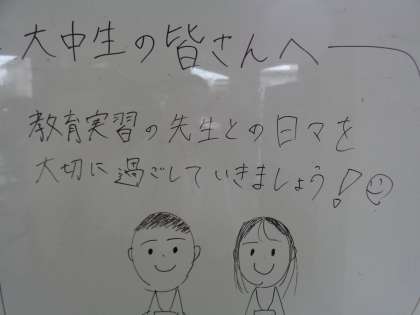 大中生の皆さんへ
教育実習の先生との日々を
大切に過ごしていきましょう!